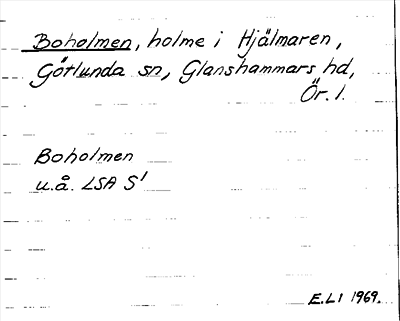 Boholmen, holme i Hjälmaren,
Götlunda sn, Glanshammars hd,
Ör. l.
Boholmen
u.å. LSA S¹
E.LI 1969.